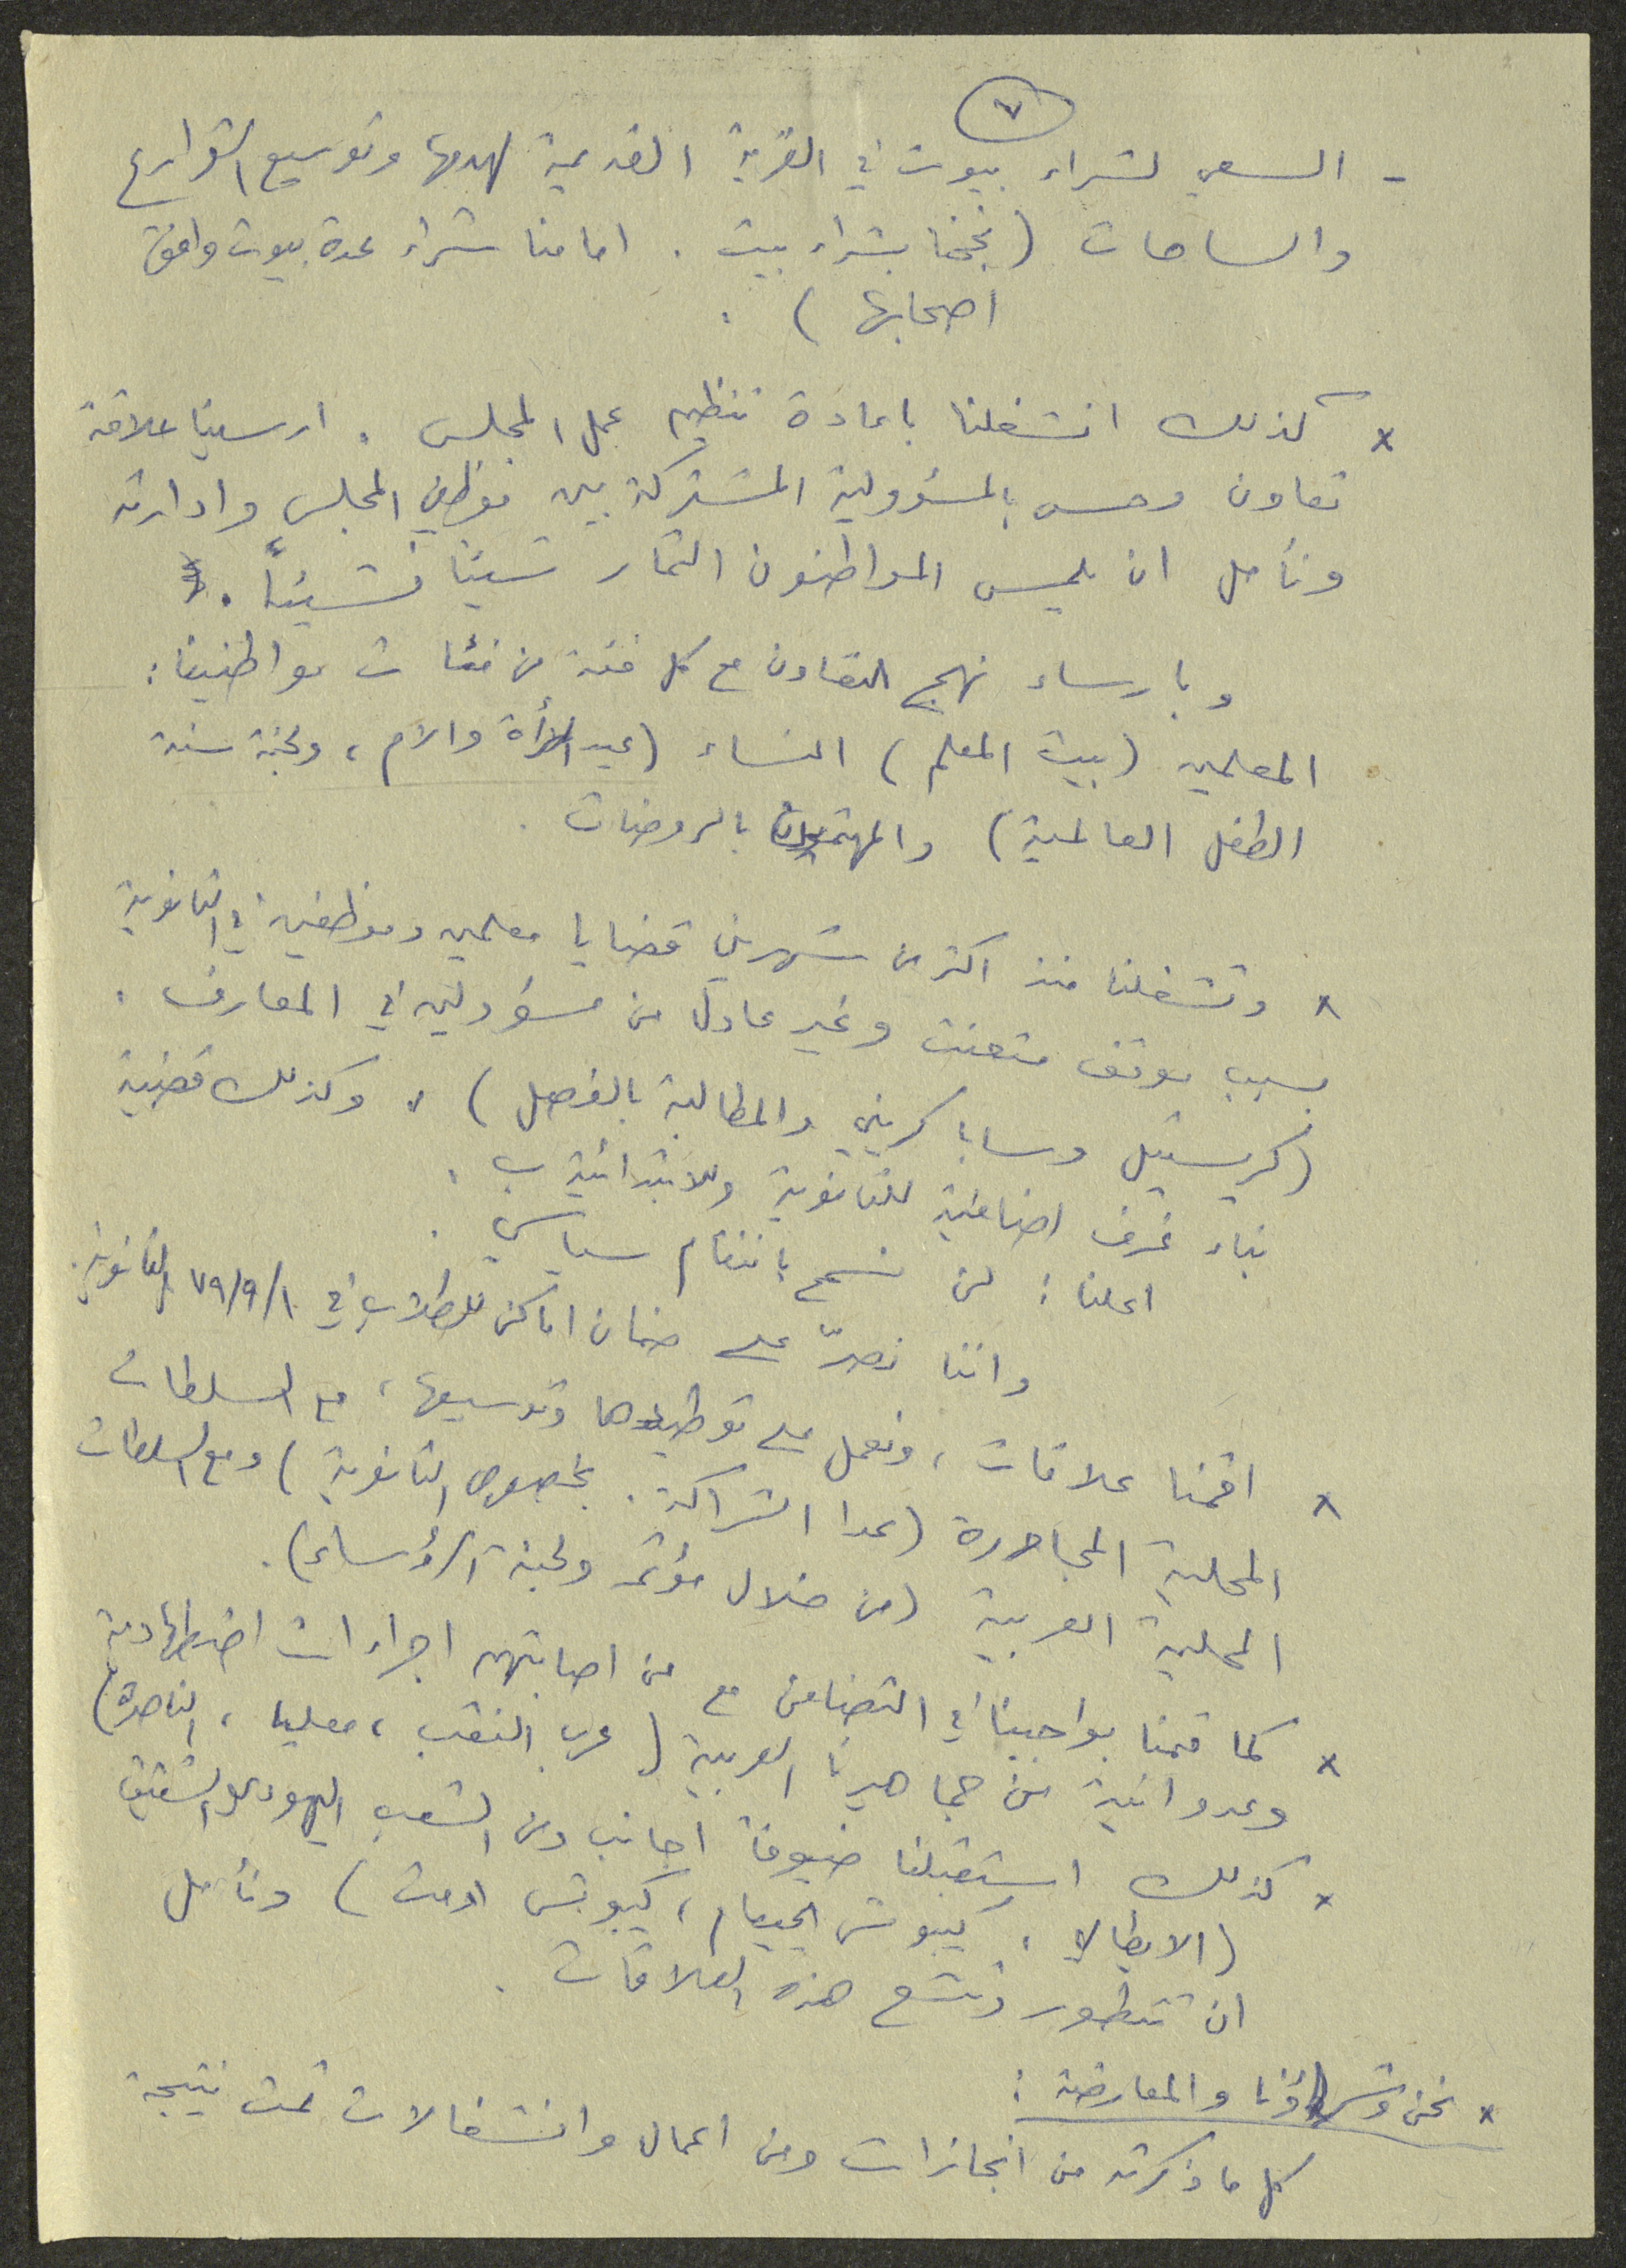 ٧
- السعي لشراء بيوت في القرية القديمة لهدمها وتوسيع الشوارع
والساحات (نجحنا بشراء بيت . امامنا شراء عدة بيوت وافق
اصحابها ) .
x كذلك انشغلنا باعادة تنظيم عمل المجلس . ارسينا علاقة
تعاون وحس بالمسؤولية المشتركة بين موظفي المجلس وادارته
ونأمل ان يلمس المواطنون الثمار شيئا فشيئاً .
وبارساء نهج التعاون مع كل فئة من فئات مواطنينا :
المعلمين (بيت المعلم) النساء (عيد المرأة والام ، ولجنة سنة
الطفل العالمية) والمهتمين بالروضات .
x وتشغلنا منذ اكثر من شهرين قضايا معلمين وموظفين في الثانوية
بسبب موقف متعنت وغير عادل من مسؤولين في المعارف .
(كريستيل وسابا كريني والمطالبة بالفصل) ، وكذلك قضية
بناء غرف اضافية للثانوية وللابتدائية ب .
اعلنا : لن نسمح بانتقام سياسي .
واننا نصرّ على ضمان اماكن للطلاب في ٧٩/٩/١ الثانوية.
x اقمنا علاقات ، ونعمل على توطيدها وتوسيعها ، مع السلطات
المحلية المجاورة (عدا الشراكة . بخصوص الثانوية) ومع السلطات
المحلية العربية (من خلال مؤتمر ولجنة الرؤساء) .
x كما قمنا بواجبنا في التضامن مع من اصابتهم اجراءات اضطهادية
وعدوانية من جماهيرنا العربية (عرب النقب ، معليا ، الناصرة)
x كذلك استقبلنا ضيوفا اجانب ومن الشعب اليهودي الشقيق
(الايطالا ، كيبوتس ، كيبوتس ) ونأمل
ان تتطور وتتسع هذه العلاقات .
x نحن وشركاؤنا والمعارضة :
كل ما ذكرته من انجازات ومن اعمال وانشغالات تمت نتيجة